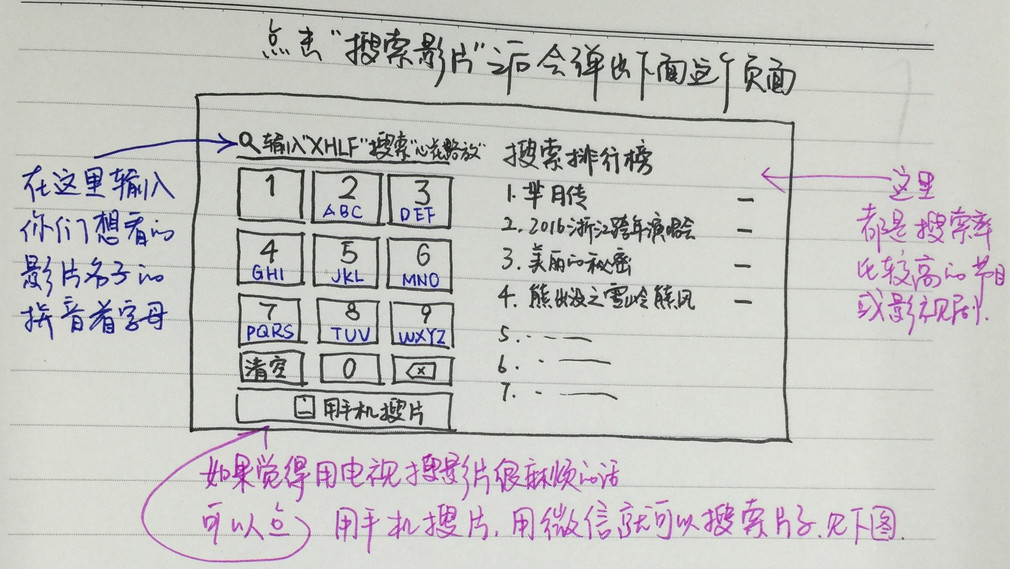 点击“搜索影片”之后会弹出下面这个页面
输入“XHLF”搜索“心花路放”
1
2
ABC
3
DEF
4
GHI
5
JKL
6
MNO
7
PQRS
8
TUV
9
WXYZ
清空
0
用手机搜片
搜索排行榜
1. 芈月传
2. 2016浙江跨年演唱会
3. 美丽的秘密
4. 熊出没之雪岭熊风
5.
6.
7.
在这里输入
你们想看的
影片名子的
拼音首字母
这里
都是搜索率
比较高的节目
或影视剧.
如果觉得用电视搜影片很麻烦的话
可以点 用手机搜片, 用微信就可以搜索片子.见下图.